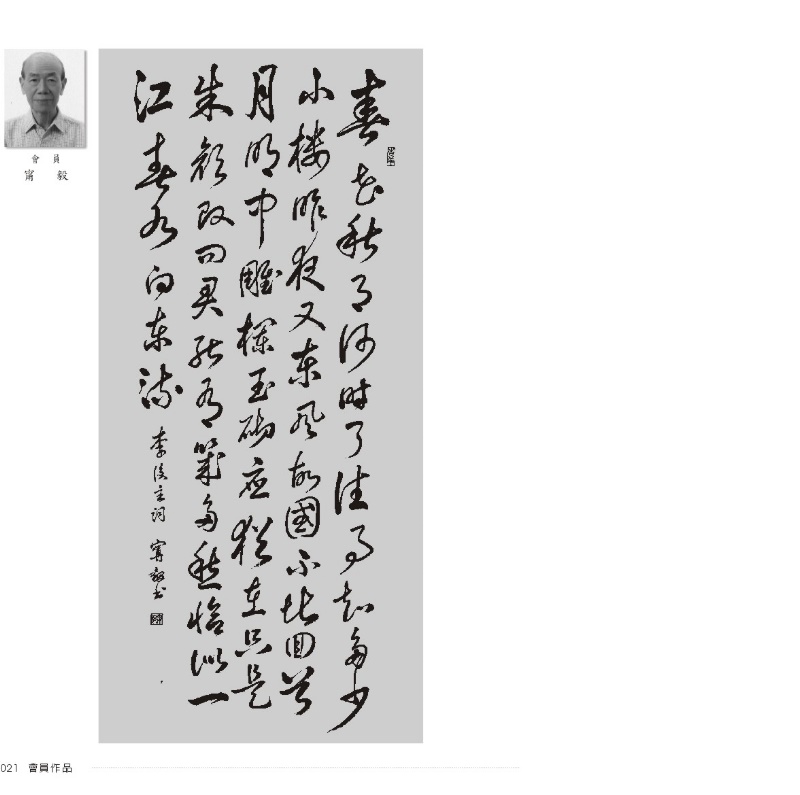 會員
甯毅
春花秋月何時了往事知多少
小樓昨夜又東風故國不堪回首
月明中雕欄玉砌應猶在只是
朱顏改問君能有幾多愁恰似一
江春水向東流
李後主詞 甯毅書
021 會員作品